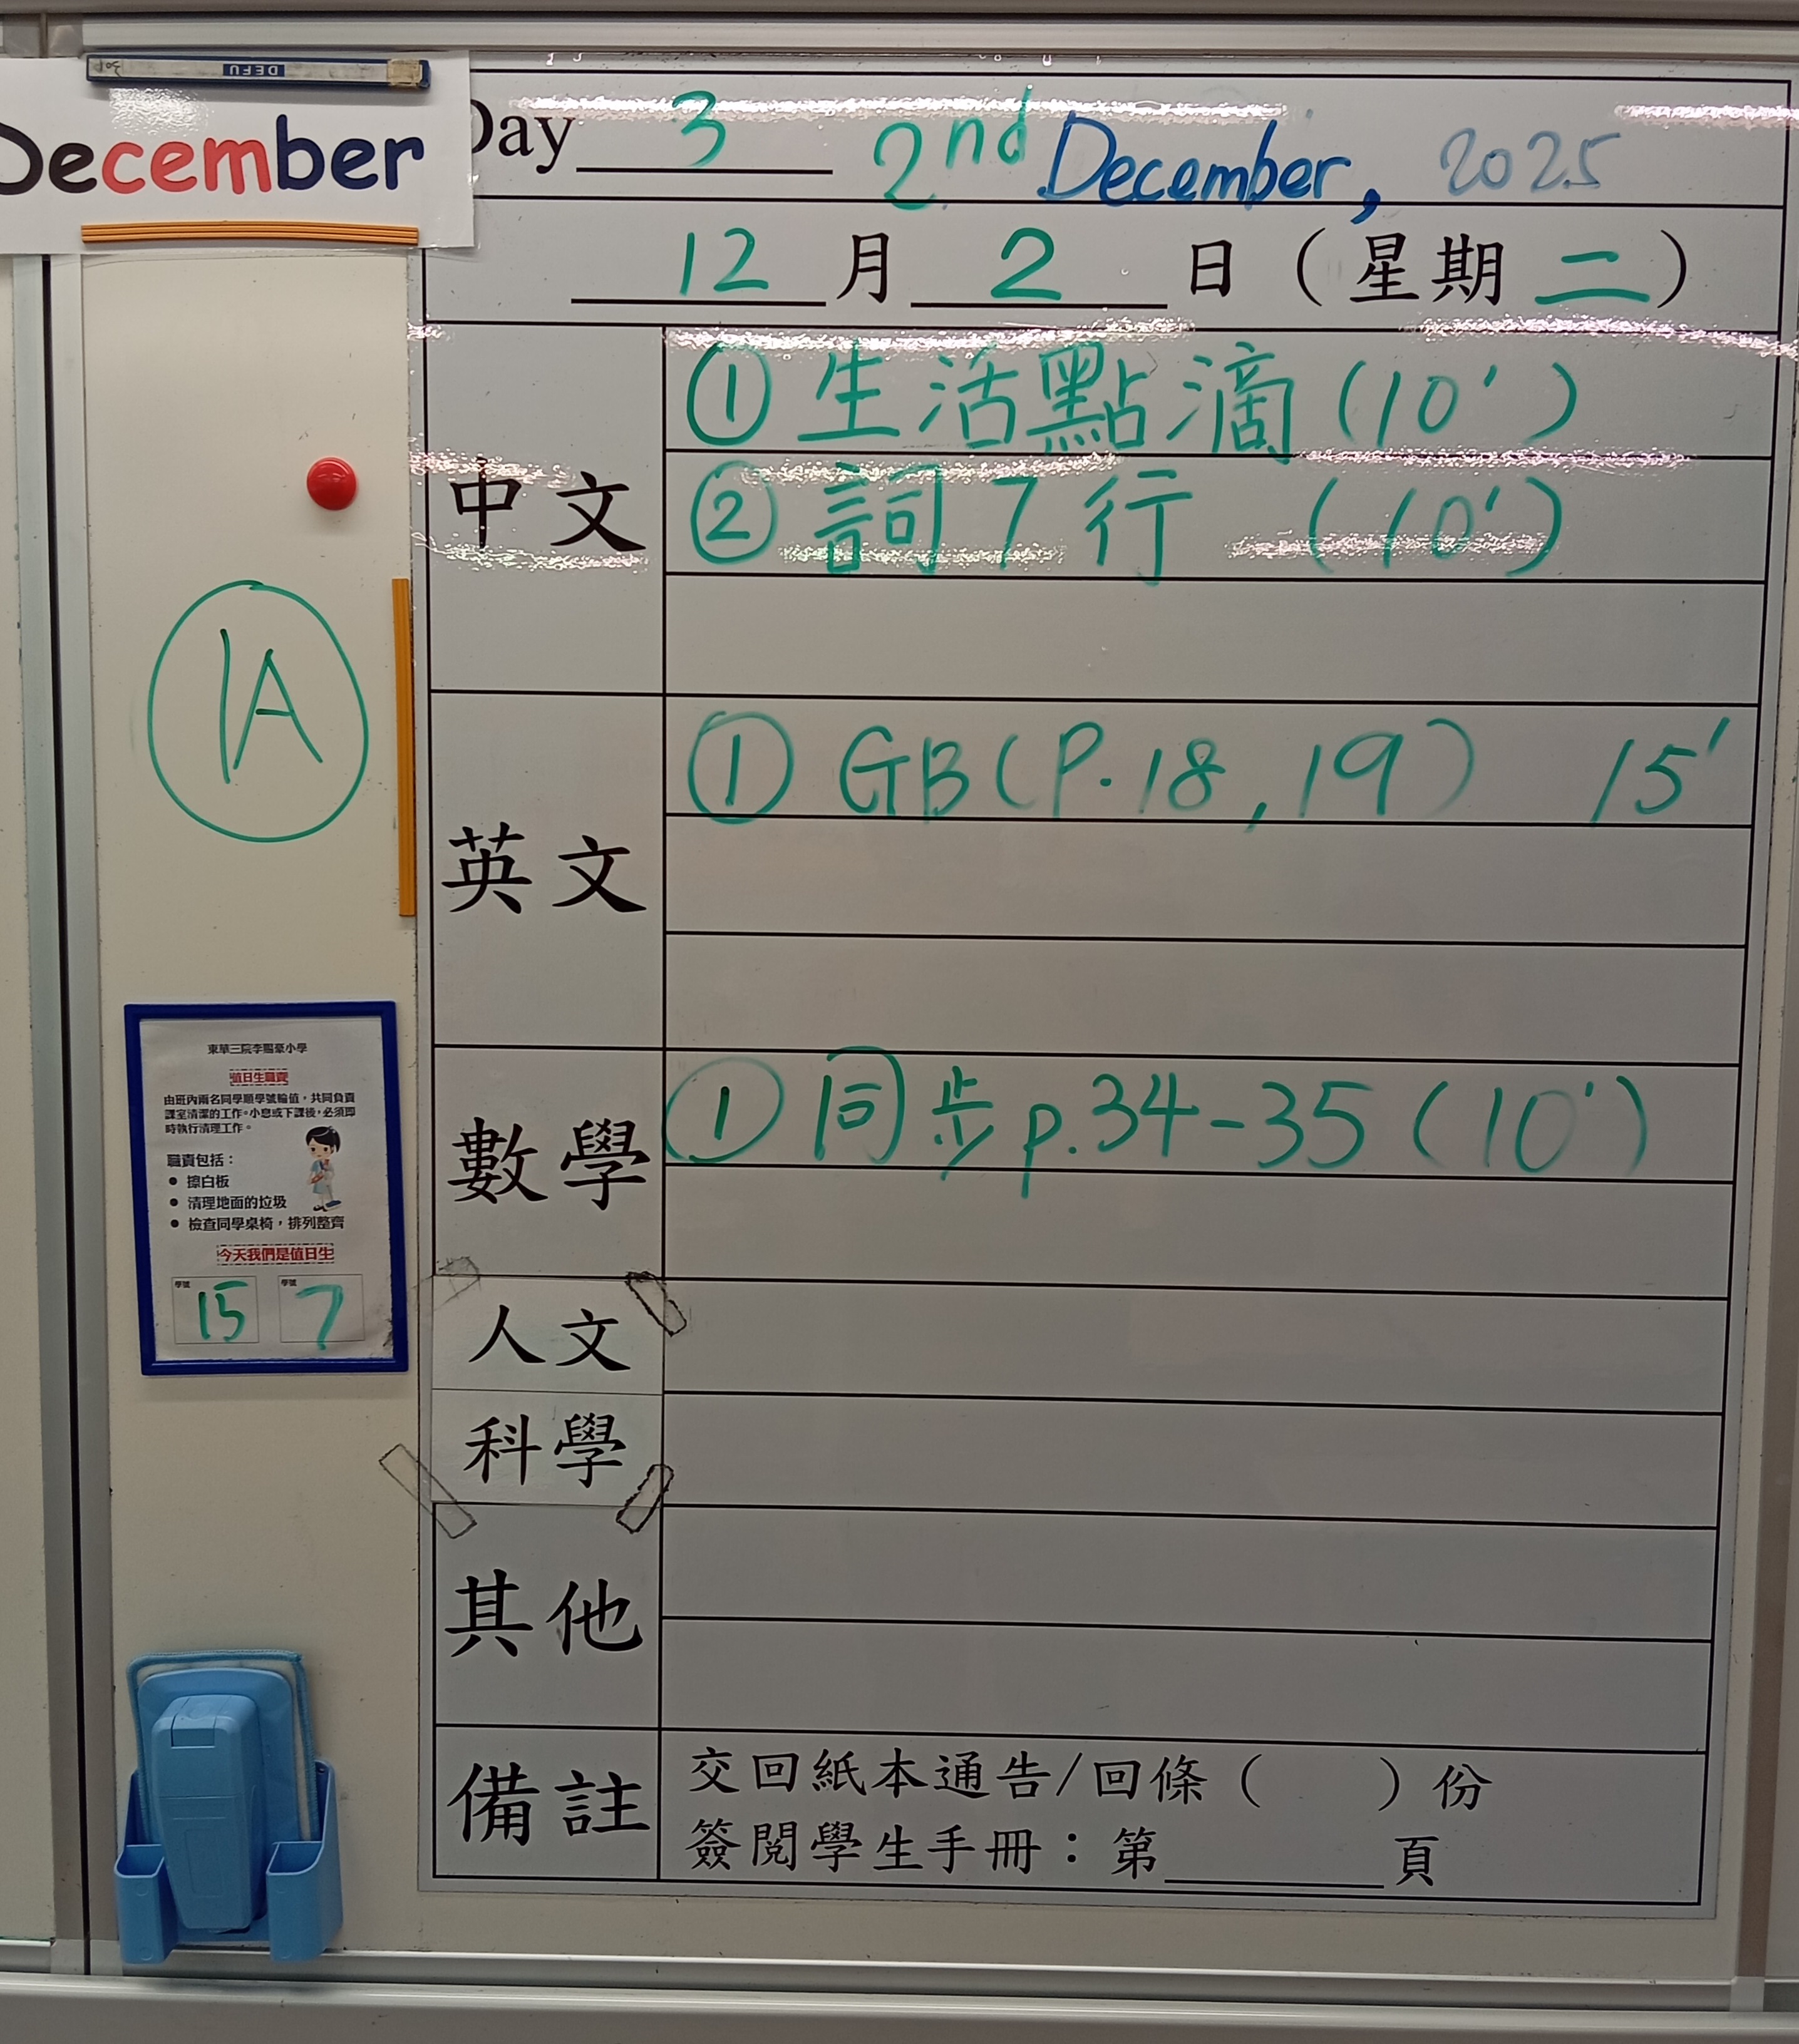 DEFU
December
Day 3 2nd December, 2025
12 月 2 日 (星期 二)
中文
① 生活點滴 (10')
② 詞7行 (10')
1A
英文
① GB (P.18, 19) 15'
數學
① 同步 p.34-35 (10')
人文
科學
其他
備註
交回紙本通告/回條 ( ) 份
簽閱學生手冊：第______頁
東華三院李賜豪小學
值日生職責
由班內兩名同學順學號輪值，共同負責
課室清潔的工作。小息或下課後，必須即
時執行清理工作。
職責包括：
• 擦白板
• 清理地面的垃圾
• 檢查同學桌椅，排列整齊
今天我們是值日生
學號 15 學號 7